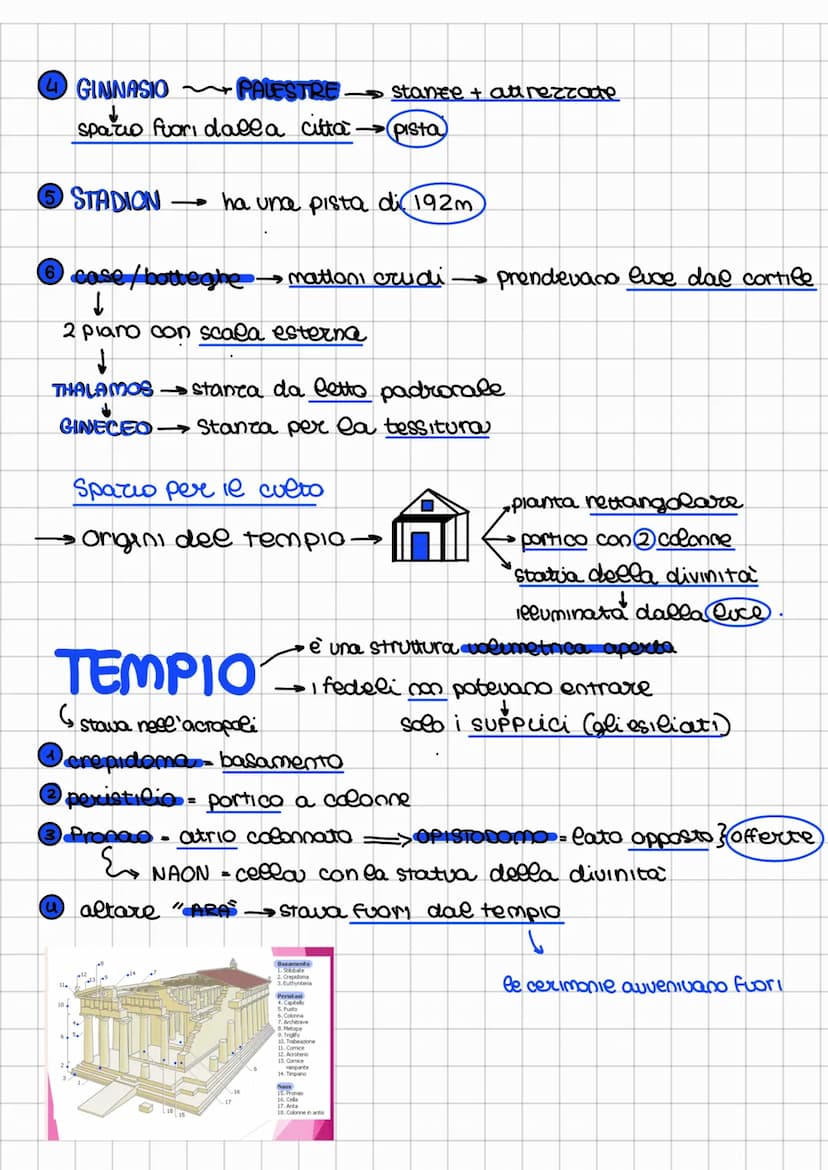 4 GINNASIO PALESTRE → stanze + attrezzate
↓
spazio fuori dalla città → pista
5 STADION → ha una pista di 192m
6 case/botteghe → mattoni crudi → prendevano luce dal cortile
↓
2 piano con scala esterna
↓
THALAMOS → stanza da letto padronale
↓
GINECEO → Stanza per la tessitura
Spazio per il culto
→ origini del tempio →
pianta rettangolare
portico con 2 colonne
statua della divinità
↓
illuminata dalla luce.
TEMPIO
→ è una struttura volumetrica aperta
→ i fedeli non potevano entrare
↓
solo i supplici (gli esiliati)
stava nell'acropoli
1 crepidoma = basamento
2 peristilio = portico a colonne
3 Pronao = atrio colonnato ⇒ OPISTODOMO = lato opposto } offerte
NAON = cella con la statua della divinità
4 altare "ARA" → stava fuori dal tempio
↓
le cerimonie avvenivano fuori
Basamento
1. Stilobate
2. Crepidoma
3. Euthynteria
Peristasi
4. Capitello
5. Fusto
6. Colonna
7. Architrave
8. Metopa
9. Triglifo
10. Trabeazione
11. Cornice
12. Acroterio
13. Cornice
rampante
14. Timpano
Naos
15. Pronao
16. Cella
17. Anta
18. Colonne in antis